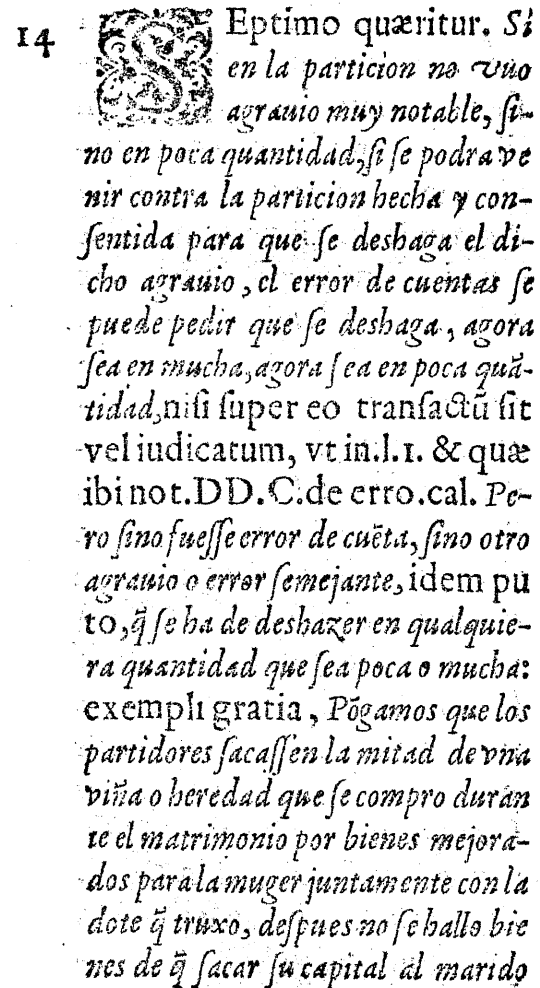 14 SEptimo quæritur. Si
en la particion no vuo
agrauio muy notable, ſi-
no en poca quantidad, ſi ſe podra ve
nir contra la particion hecha y con-
ſentida para que ſe deshaga el di-
cho agrauio, el error de cuentas ſe
puede pedir que ſe deshaga, agora
ſea en mucha, agora ſea en poca quã-
tidad, niſi ſuper eo tranſactũ ſit
vel iudicatum, vt in.l.1. & quæ
ibi not.DD.C.de erro.cal. Pe-
ro ſino fueſſe error de cuẽta, ſino otro
agrauio o error ſemejante, idem pu
to, q̃ ſe ha de deshazer en qualquie-
ra quantidad que ſea poca o mucha:
exempli gratia, Põgamos que los
partidores ſacaſſen la mitad de vna
viña o heredad que ſe compro duran
te el matrimonio por bienes mejora-
dos para la muger juntamente con la
dote q̃ truxo, deſpues no ſe hallo bie
nes de q̃ ſacar ſu capital al marido